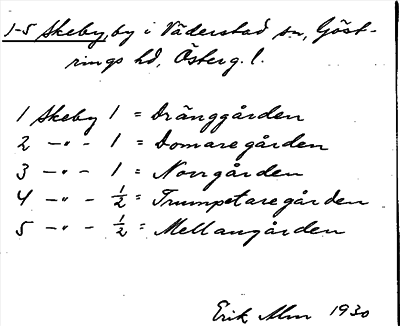 1-5 Skeby, by i Väderstad sn, Göst-
rings hd, Österg. l.
1 Skeby 1 = Dränggården
2 -"- 1 = Domaregården
3 -"- 1 = Norrgården
4 -"- 1/2 = Trumpetaregården
5 -"- 1/2 = Mellangården
Erik Alm 1930